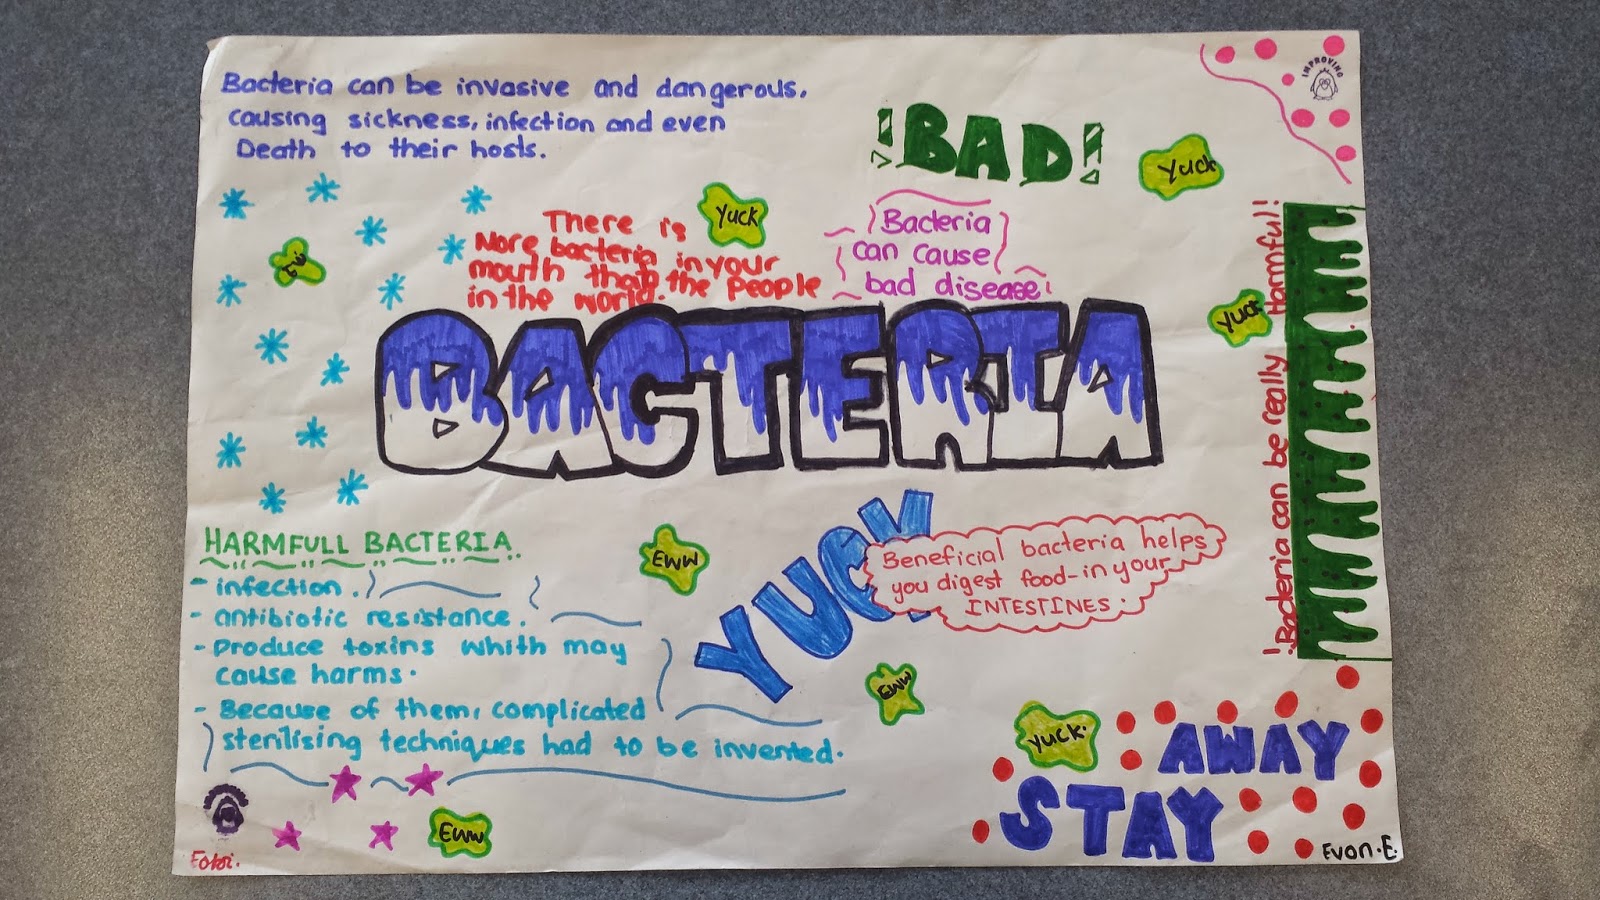 Bacteria can be invasive and dangerous.
causing sickness, infection and even
Death to their hosts.
!BAD!
IMPROVING
Yuck
Yuck
There is
More bacteria in your
mouth that the people
in the world.
Bacteria
can cause
bad disease
Yuck
!Bacteria can be really Harmful!
BACTERIA
HARMFULL BACTERIA.
- infection.
- antibiotic resistance.
- produce toxins whith may
cause harms.
- Because of them, complicated
sterilising techniques had to be invented.
Eww
YUCK
Beneficial bacteria helps
you digest food-in your
INTESTINES.
Eww
Yuck.
AWAY
STAY
Eww
Evon.E.